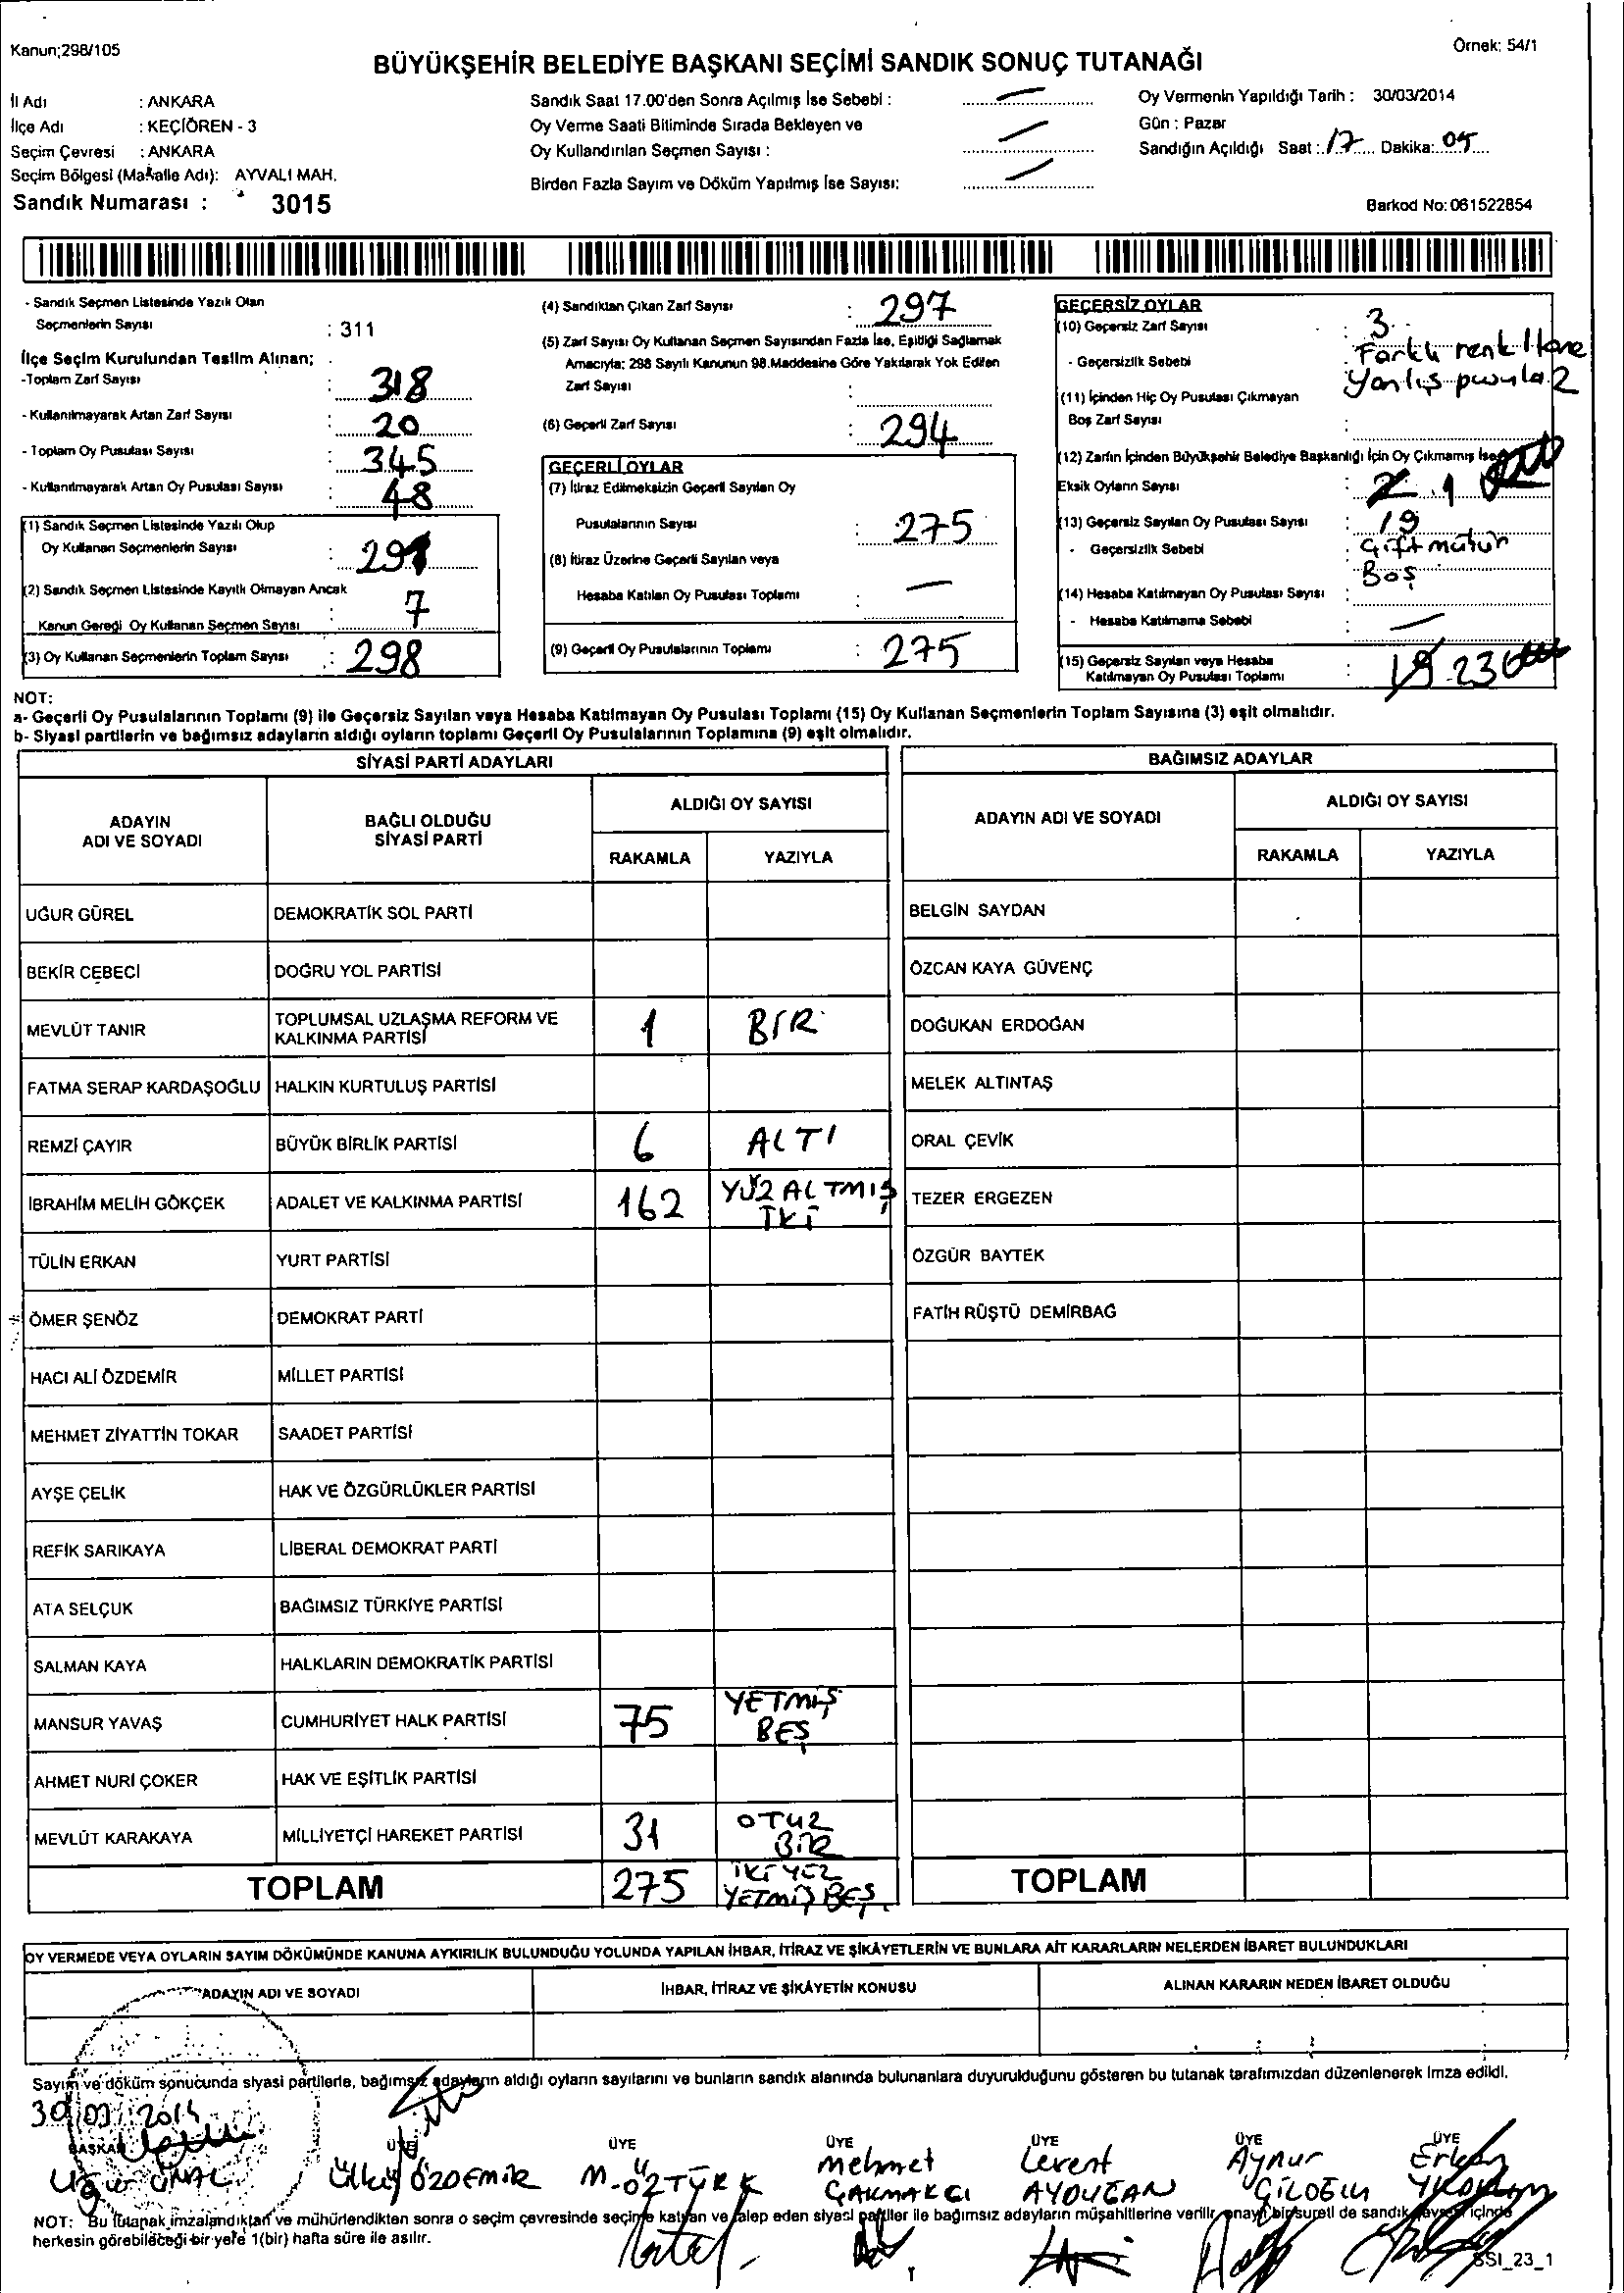 Kanun;298/105
Örnek: 54/1
BÜYÜKŞEHİR BELEDİYE BAŞKANI SEÇİMİ SANDIK SONUÇ TUTANAĞI
İl Adı : ANKARA
İlçe Adı : KEÇİÖREN - 3
Seçim Çevresi : ANKARA
Seçim Bölgesi (Mahalle Adı): AYVALI MAH.
Sandık Numarası : 3015
Sandık Saat 17.00'den Sonra Açılmış İse Sebebi : —
Oy Verme Saati Bitiminde Sırada Bekleyen ve
Oy Kullandırılan Seçmen Sayısı : —
Birden Fazla Sayım ve Döküm Yapılmış İse Sayısı: —
Oy Vermenin Yapıldığı Tarih : 30/03/2014
Gün : Pazar
Sandığın Açıldığı Saat : 17 Dakika: 05
Barkod No: 061522854
- Sandık Seçmen Listesinde Yazılı Olan
Seçmenlerin Sayısı : 311
İlçe Seçim Kurulundan Teslim Alınan;
-Toplam Zarf Sayısı : 318
- Kullanılmayarak Artan Zarf Sayısı : 20
- Toplam Oy Pusulası Sayısı : 345
- Kullanılmayarak Artan Oy Pusulası Sayısı : 48
(1) Sandık Seçmen Listesinde Yazılı Olup
Oy Kullanan Seçmenlerin Sayısı : 291
(2) Sandık Seçmen Listesinde Kayıtlı Olmayan Ancak
Kanun Gereği Oy Kullanan Seçmen Sayısı : 7
(3) Oy Kullanan Seçmenlerin Toplam Sayısı : 298
(4) Sandıktan Çıkan Zarf Sayısı : 297
(5) Zarf Sayısı Oy Kullanan Seçmen Sayısından Fazla İse, Eşitliği Sağlamak
Amacıyla; 298 Sayılı Kanunun 98.Maddesine Göre Yakılarak Yok Edilen
Zarf Sayısı :
(6) Geçerli Zarf Sayısı : 294
GEÇERLİ OYLAR
(7) İtiraz Edilmeksizin Geçerli Sayılan Oy
Pusulalarının Sayısı : 275
(8) İtiraz Üzerine Geçerli Sayılan veya
Hesaba Katılan Oy Pusulası Toplamı : —
(9) Geçerli Oy Pusulalarının Toplamı : 275
GEÇERSİZ OYLAR
(10) Geçersiz Zarf Sayısı : 3
- Geçersizlik Sebebi : Farklı renk 1 tane
Yanlış pusula 2
(11) İçinden Hiç Oy Pusulası Çıkmayan
Boş Zarf Sayısı :
(12) Zarfın İçinden Büyükşehir Belediye Başkanlığı İçin Oy Çıkmamış İse
Eksik Oyların Sayısı : 1
(13) Geçersiz Sayılan Oy Pusulası Sayısı : 19
- Geçersizlik Sebebi : Çift mühür
Boş
(14) Hesaba Katılmayan Oy Pusulası Sayısı :
- Hesaba Katılmama Sebebi : —
(15) Geçersiz Sayılan veya Hesaba
Katılmayan Oy Pusulası Toplamı : 19 23
NOT:
a- Geçerli Oy Pusulalarının Toplamı (9) ile Geçersiz Sayılan veya Hesaba Katılmayan Oy Pusulası Toplamı (15) Oy Kullanan Seçmenlerin Toplam Sayısına (3) eşit olmalıdır.
b- Siyasi partilerin ve bağımsız adayların aldığı oyların toplamı Geçerli Oy Pusulalarının Toplamına (9) eşit olmalıdır.
SİYASİ PARTİ ADAYLARI
ADAYIN ADI VE SOYADI
BAĞLI OLDUĞU SİYASİ PARTİ
ALDIĞI OY SAYISI
RAKAMLA YAZIYLA
UĞUR GÜREL DEMOKRATİK SOL PARTİ
BEKİR CEBECİ DOĞRU YOL PARTİSİ
MEVLÜT TANIR TOPLUMSAL UZLAŞMA REFORM VE KALKINMA PARTİSİ 1 BİR
FATMA SERAP KARDAŞOĞLU HALKIN KURTULUŞ PARTİSİ
REMZİ ÇAYIR BÜYÜK BİRLİK PARTİSİ 6 ALTI
İBRAHİM MELİH GÖKÇEK ADALET VE KALKINMA PARTİSİ 162 YÜZ ALTMIŞ İKİ
TÜLİN ERKAN YURT PARTİSİ
ÖMER ŞENÖZ DEMOKRAT PARTİ
HACI ALİ ÖZDEMİR MİLLET PARTİSİ
MEHMET ZİYATTİN TOKAR SAADET PARTİSİ
AYŞE ÇELİK HAK VE ÖZGÜRLÜKLER PARTİSİ
REFİK SARIKAYA LİBERAL DEMOKRAT PARTİ
ATA SELÇUK BAĞIMSIZ TÜRKİYE PARTİSİ
SALMAN KAYA HALKLARIN DEMOKRATİK PARTİSİ
MANSUR YAVAŞ CUMHURİYET HALK PARTİSİ 75 YETMİŞ BEŞ
AHMET NURİ ÇOKER HAK VE EŞİTLİK PARTİSİ
MEVLÜT KARAKAYA MİLLİYETÇİ HAREKET PARTİSİ 31 OTUZ BİR
TOPLAM 275 İKİ YÜZ YETMİŞ BEŞ
BAĞIMSIZ ADAYLAR
ADAYIN ADI VE SOYADI
ALDIĞI OY SAYISI
RAKAMLA YAZIYLA
BELGİN SAYDAN
ÖZCAN KAYA GÜVENÇ
DOĞUKAN ERDOĞAN
MELEK ALTINTAŞ
ORAL ÇEVİK
TEZER ERGEZEN
ÖZGÜR BAYTEK
FATİH RÜŞTÜ DEMİRBAĞ
TOPLAM
OY VERMEDE VEYA OYLARIN SAYIM DÖKÜMÜNDE KANUNA AYKIRILIK BULUNDUĞU YOLUNDA YAPILAN İHBAR, İTİRAZ VE ŞİKÂYETLERİN VE BUNLARA AİT KARARLARIN NELERDEN İBARET BULUNDUKLARI
ADAYIN ADI VE SOYADI
İHBAR, İTİRAZ VE ŞİKÂYETİN KONUSU
ALINAN KARARIN NEDEN İBARET OLDUĞU
Sayım ve döküm sonucunda siyasi partilerle, bağımsız adayların aldığı oyların sayılarını ve bunların sandık alanında bulunanlara duyurulduğunu gösteren bu tutanak tarafımızdan düzenlenerek imza edildi.
30/03/2014
BAŞKAN ÜYE ÜYE ÜYE ÜYE ÜYE ÜYE
Uğur ÜNAL
Ülkü ÖZDEMİR
M. ÖZTÜRK
Mehmet ÇAKMAKÇI
Levent AYDOĞAN
Aynur
Erkan YILDIRIM
NOT: Bu tutanak imzalandıktan ve mühürlendikten sonra o seçim çevresinde seçime katılan ve talep eden siyasi partiler ile bağımsız adayların müşahitlerine verilir, onaylı bir sureti de sandık çevresi içinde
herkesin görebileceği bir yere 1(bir) hafta süre ile asılır.
SSI_23_1